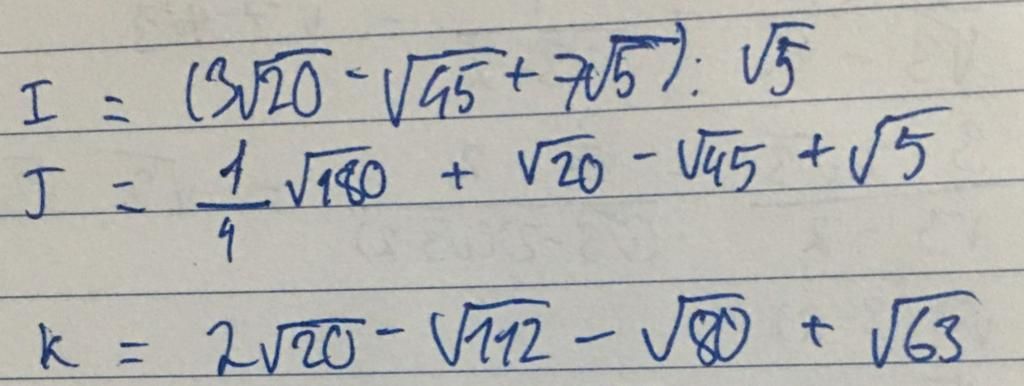 I = (3√20 - √45 + 7√5) : √5
J = 1/4 √180 + √20 - √45 + √5
K = 2√20 - √112 - √80 + √63